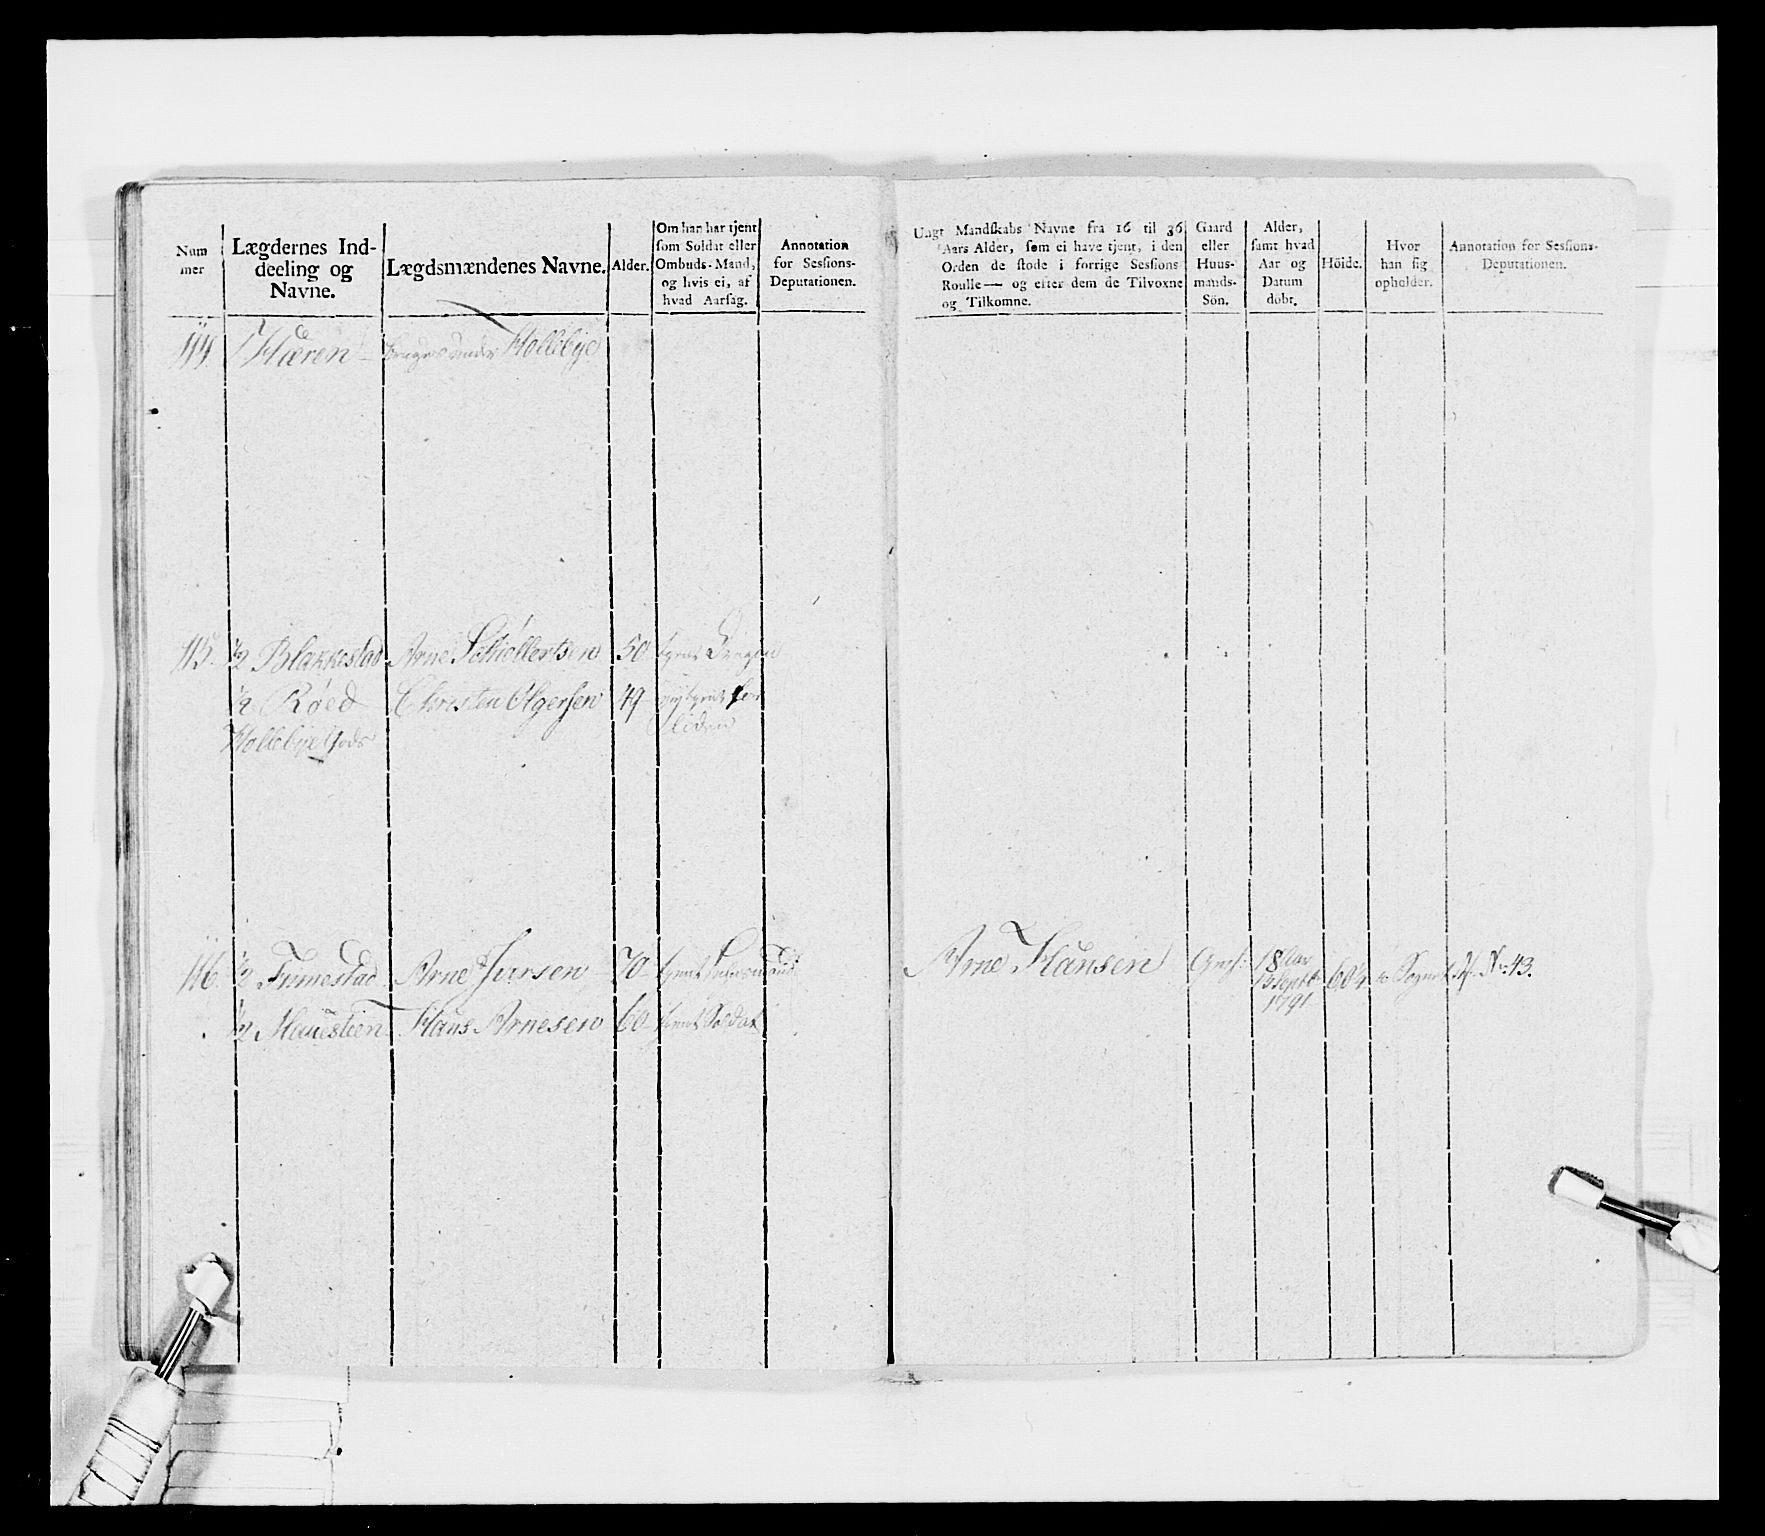 Num
mer
Lægdernes Ind-
deeling og
Navne.
Lægdsmændenes Navne.
Alder.
Om han har tjent
som Soldat eller
Ombuds-Mand,
og hvis ei, af
hvad Aarsag.
Annotation
for Sessions-
Deputationen.
Ungt Mandskabs Navne fra 16 til 36
Aars Alder, som ei have tjent, i den
Orden de stode i forrige Sessions-
Roulle — og efter dem de Tilvoxne
og Tilkomne.
Gaard
eller
Huus-
mands-
Sön.
Alder,
samt hvad
Aar og
Datum
döbt.
Höide.
Hvor
han sig
opholder.
Annotation for Sessions-
Deputationen.
114. 1 Kæren bruges under Hollebye
115. 1/2 Blakkestad Arne Schiøllertsen 50 tjent Dragon
1/2 Røed Christen Olgersen 49
Hollebye Gods liden
116. 1/2 Tumestad Arne Iversen 70 tjent
1/2 Hans Arnesen 60 tjent Soldat
Arne Hansen 18 Aar
13 Septbr
1791
Sognet No: 43.